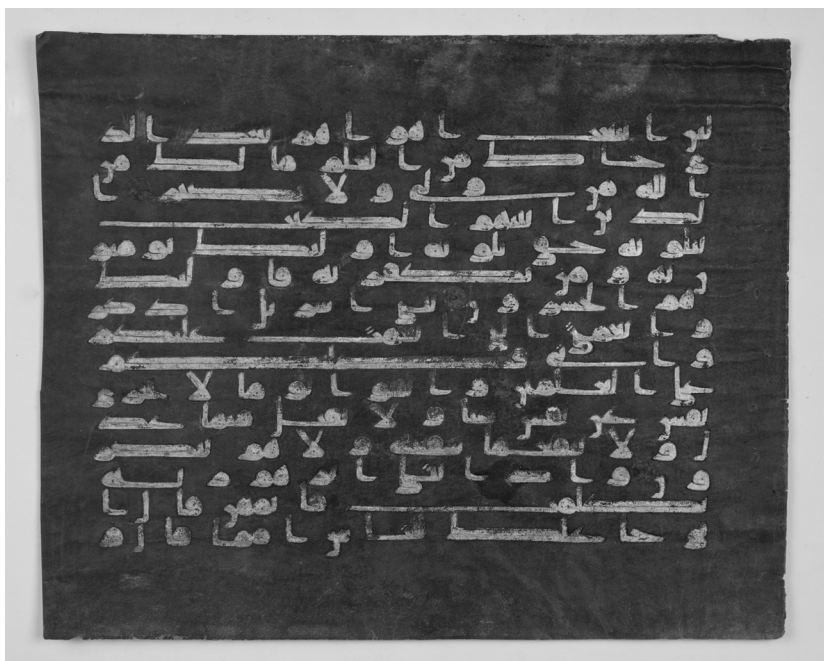 لئن اتبعت اهواهم بعد الذ
ي جاك من العلم ما لك من
الله من ولي ولا نصير ا
لذين اتينهم الكتب يت
لونه حق تلوته اولئك يومنو
ن به ومن يكفر به فاولئك
هم الخسرون يبني اسريل اذكر
وا نعمتي التي انعمت عليكم
واني فضلتكم
على العلمين واتقوا يوما لا تجزي
نفس عن نفس شيا ولا يقبل منها عد
ل ولا تنفعها شفعة ولا هم ينصر
ون واذ ابتلى ابرهم ربه
بكلمت فاتمهن قال ا
ني جاعلك للناس اماما قال و